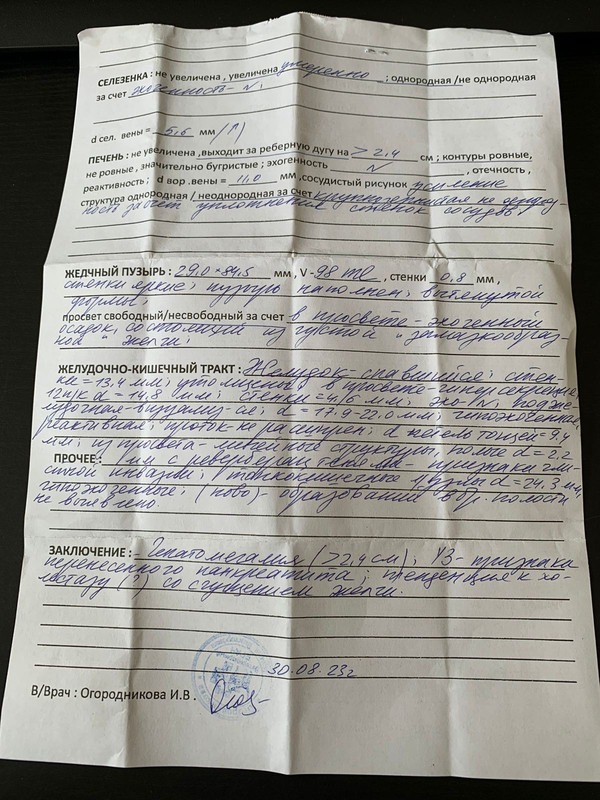 СЕЛЕЗЕНКА : не увеличена , увеличена умеренно ; однородная /не однородная
за счет эхогенность - N ;
d сел. вены = 5,6 мм /↑/
ПЕЧЕНЬ : не увеличена ,выходит за реберную дугу на > 2,4 см ; контуры ровные,
не ровные , значительно бугристые ; эхогенность N , отечность ,
реактивность ; d вор .вены = 11,0 мм ,сосудистый рисунок усиление
структура однородная / неоднородная за счет крупнозернистая не однород-
ность за счет уплотнения стенок сосудов
ЖЕДЧНЫЙ ПУЗЫРЬ : 29,0 × 84,5 мм , V - 98 ml , стенки 0,8 мм ,
стенки яркие; пузырь наполнен; вытянутой
формы;
просвет свободный/несвободный за счет в просвете - эхогенный
осадок, состоящий из густой "замазкообраз-
ной" желчи;
ЖЕЛУДОЧНО-КИШЕЧНЫЙ ТРАКТ : Желудок - спавшийся; стен-
ки = 13,4 мм; утолщены; в просвете - гиперсекреция;
12п/к d = 14,8 мм; стенки = 4,6 мм; эхо - N; поджелу-
дочная - визуализ-ся; d = 17,9-22,0 мм; гипоэхогенная,
реактивная; проток - не расширен; d петель тощей = 9,4
мм; из просвета - линейные структуры полые d = 2,2
ПРОЧЕЕ : мм с реверберац - признаки гли-
стной инвазии; тонкокишечные узлы d = 24,3 мм,
гипоэхогенные; (ново) - образований в бр. полости
не выявлено.
ЗАКЛЮЧЕНИЕ : - Гепатомегалия (> 2,4 см); УЗ - признаки
перенесенного панкреатита; тенденция к хо-
лестазу (?) со сгущением желчи.
30.08.23г
В/Врач : Огородникова И.В .